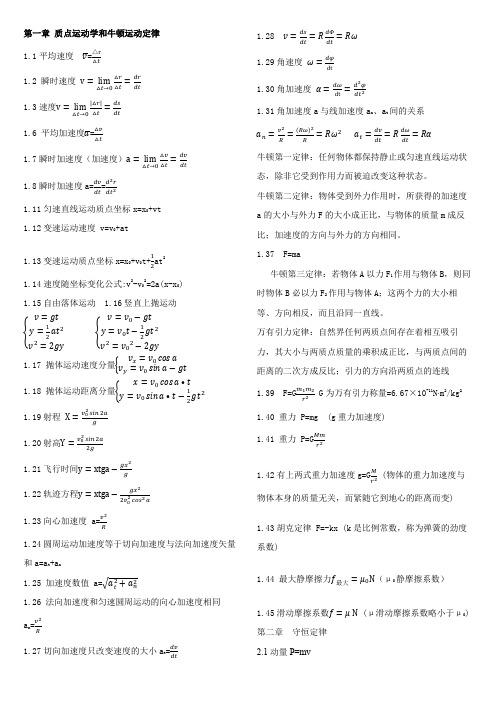 第一章 质点运动学和牛顿运动定律
1.1平均速度 v̅=△r/△t
1.2 瞬时速度 v=lim(△t→0) △r/△t=dr/dt
1.3速度v=lim(△t→0) |△r|/△t=ds/dt
1.6 平均加速度a̅=△v/△t
1.7瞬时加速度(加速度)a=lim(△t→0) △v/△t=dv/dt
1.8瞬时加速度a=dv/dt=d²r/dt²
1.11匀速直线运动质点坐标x=x₀+vt
1.12变速运动速度 v=v₀+at
1.13变速运动质点坐标x=x₀+v₀t+½at²
1.14速度随坐标变化公式:v²-v₀²=2a(x-x₀)
1.15自由落体运动 1.16竖直上抛运动
{v=gt {v=v₀−gt
{y=½at² {y=v₀t−½gt²
{v²=2gy {v²=v₀²−2gy
1.17 抛体运动速度分量{vₓ=v₀ cos a
v_y=v₀ sin a−gt
1.18 抛体运动距离分量{x=v₀ cos a•t
y=v₀ sin a•t−½gt²
1.19射程 X=v₀² sin 2a/g
1.20射高Y=v₀² sin 2a/2g
1.21飞行时间y=xtga−gx²/g
1.22轨迹方程y=xtga−gx²/2v₀² cos² a
1.23向心加速度 a=v²/R
1.24圆周运动加速度等于切向加速度与法向加速度矢量
和a=aₜ+aₙ
1.25 加速度数值 a=√(aₜ²+aₙ²)
1.26 法向加速度和匀速圆周运动的向心加速度相同
aₙ=v²/R
1.27切向加速度只改变速度的大小aₜ=dv/dt
1.28 v=ds/dt=R dΦ/dt=Rω
1.29角速度 ω=dφ/dt
1.30角加速度 α=dω/dt=d²φ/dt²
1.31角加速度a与线加速度aₙ、aₜ间的关系
aₙ=v²/R=(Rω)²/R=Rω² aₜ=dv/dt=R dω/dt=Rα
牛顿第一定律:任何物体都保持静止或匀速直线运动状
态,除非它受到作用力而被迫改变这种状态。
牛顿第二定律:物体受到外力作用时,所获得的加速度
a的大小与外力F的大小成正比,与物体的质量m成反
比;加速度的方向与外力的方向相同。
1.37 F=ma
牛顿第三定律:若物体A以力F₁作用与物体B,则同
时物体B必以力F₂作用与物体A;这两个力的大小相
等、方向相反,而且沿同一直线。
万有引力定律:自然界任何两质点间存在着相互吸引
力,其大小与两质点质量的乘积成正比,与两质点间的
距离的二次方成反比;引力的方向沿两质点的连线
1.39 F=G m₁m₂/r² G为万有引力称量=6.67×10⁻¹¹N•m²/kg²
1.40 重力 P=mg (g重力加速度)
1.41 重力 P=G Mm/r²
1.42有上两式重力加速度g=G M/r² (物体的重力加速度与
物体本身的质量无关,而紧随它到地心的距离而变)
1.43胡克定律 F=−kx (k是比例常数,称为弹簧的劲度
系数)
1.44 最大静摩擦力f最大=μ₀N (μ₀静摩擦系数)
1.45滑动摩擦系数f=μN (μ滑动摩擦系数略小于μ₀)
第二章 守恒定律
2.1动量P=mv